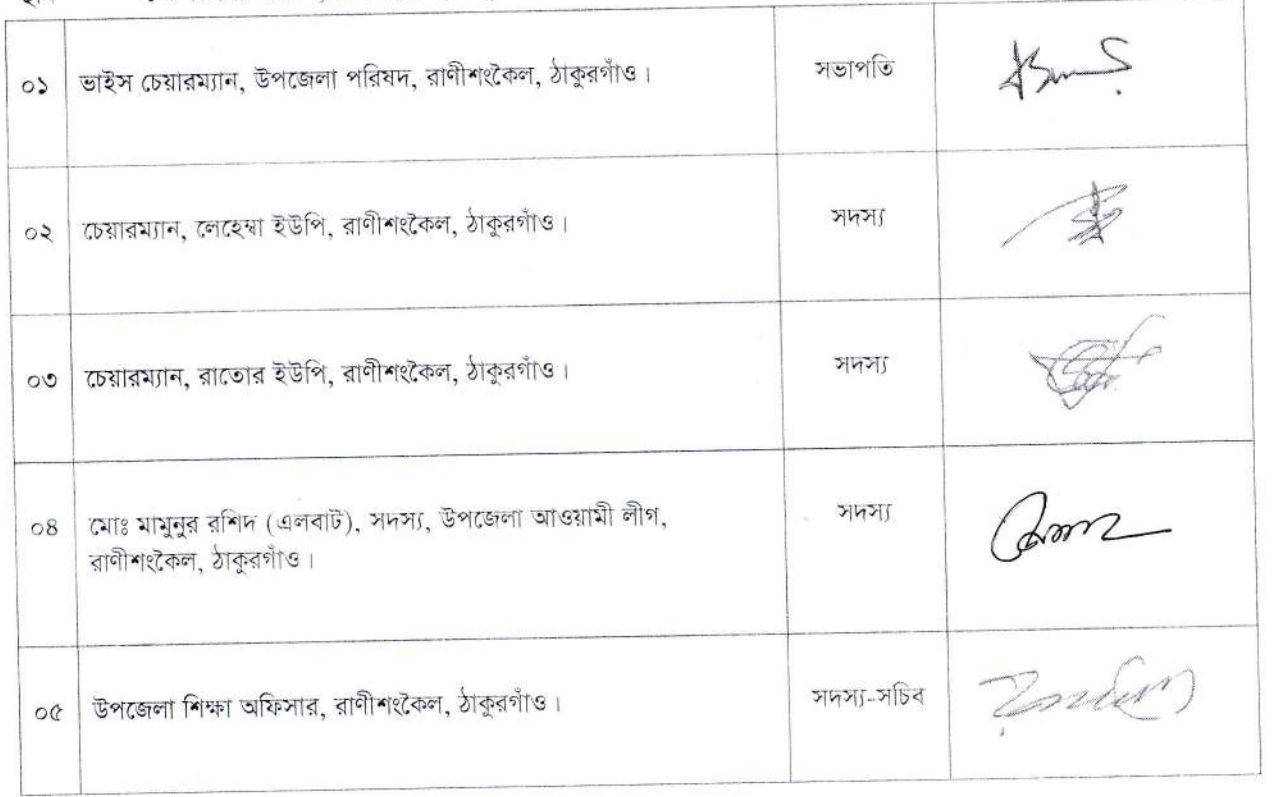 ০১ ভাইস চেয়ারম্যান, উপজেলা পরিষদ, রাণীশংকৈল, ঠাকুরগাঁও। সভাপতি
০২ চেয়ারম্যান, লেহেম্বা ইউপি, রাণীশংকৈল, ঠাকুরগাঁও। সদস্য
০৩ চেয়ারম্যান, রাতোর ইউপি, রাণীশংকৈল, ঠাকুরগাঁও। সদস্য
০৪ মোঃ মামুনুর রশিদ (এলবাট), সদস্য, উপজেলা আওয়ামী লীগ, সদস্য
রাণীশংকৈল, ঠাকুরগাঁও।
০৫ উপজেলা শিক্ষা অফিসার, রাণীশংকৈল, ঠাকুরগাঁও। সদস্য-সচিব